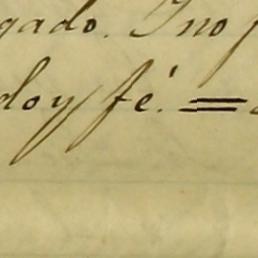 gado. Y no p
doy fé. =